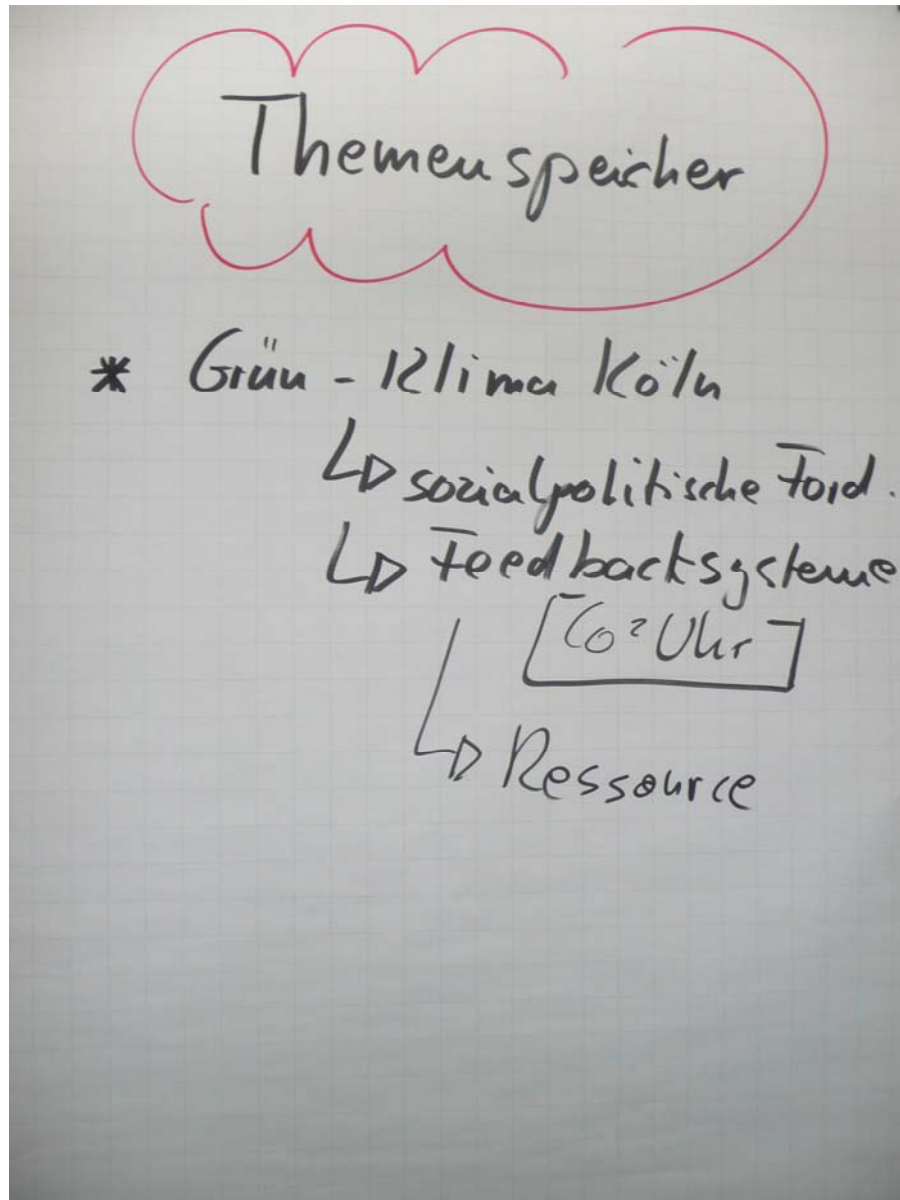 Themenspeicher
* Grün - Klima Köln
↳ sozialpolitische Ford.
↳ Feedbacksysteme
[CO² Uhr]
↳ Ressource